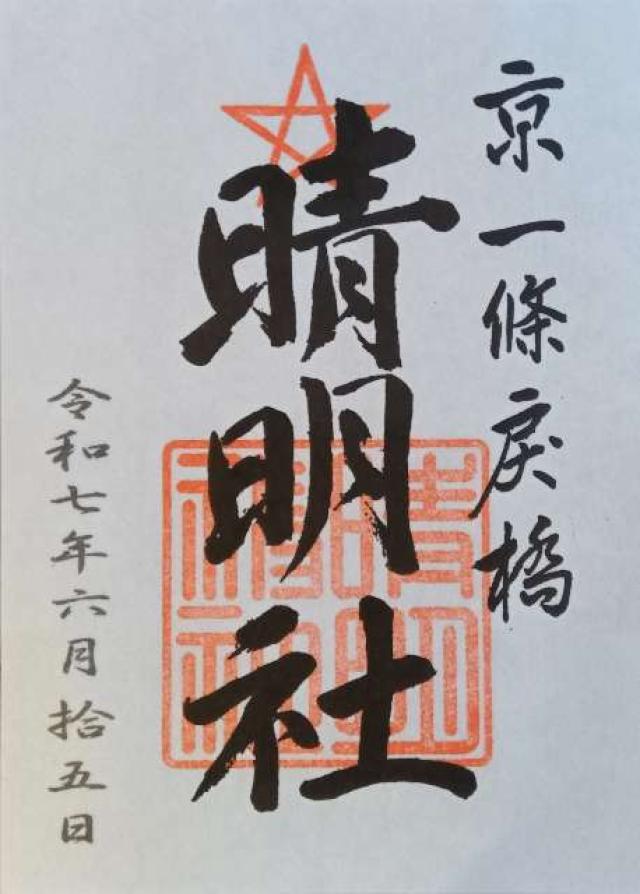 京一條戻橋
晴明社
令和七年六月拾五日